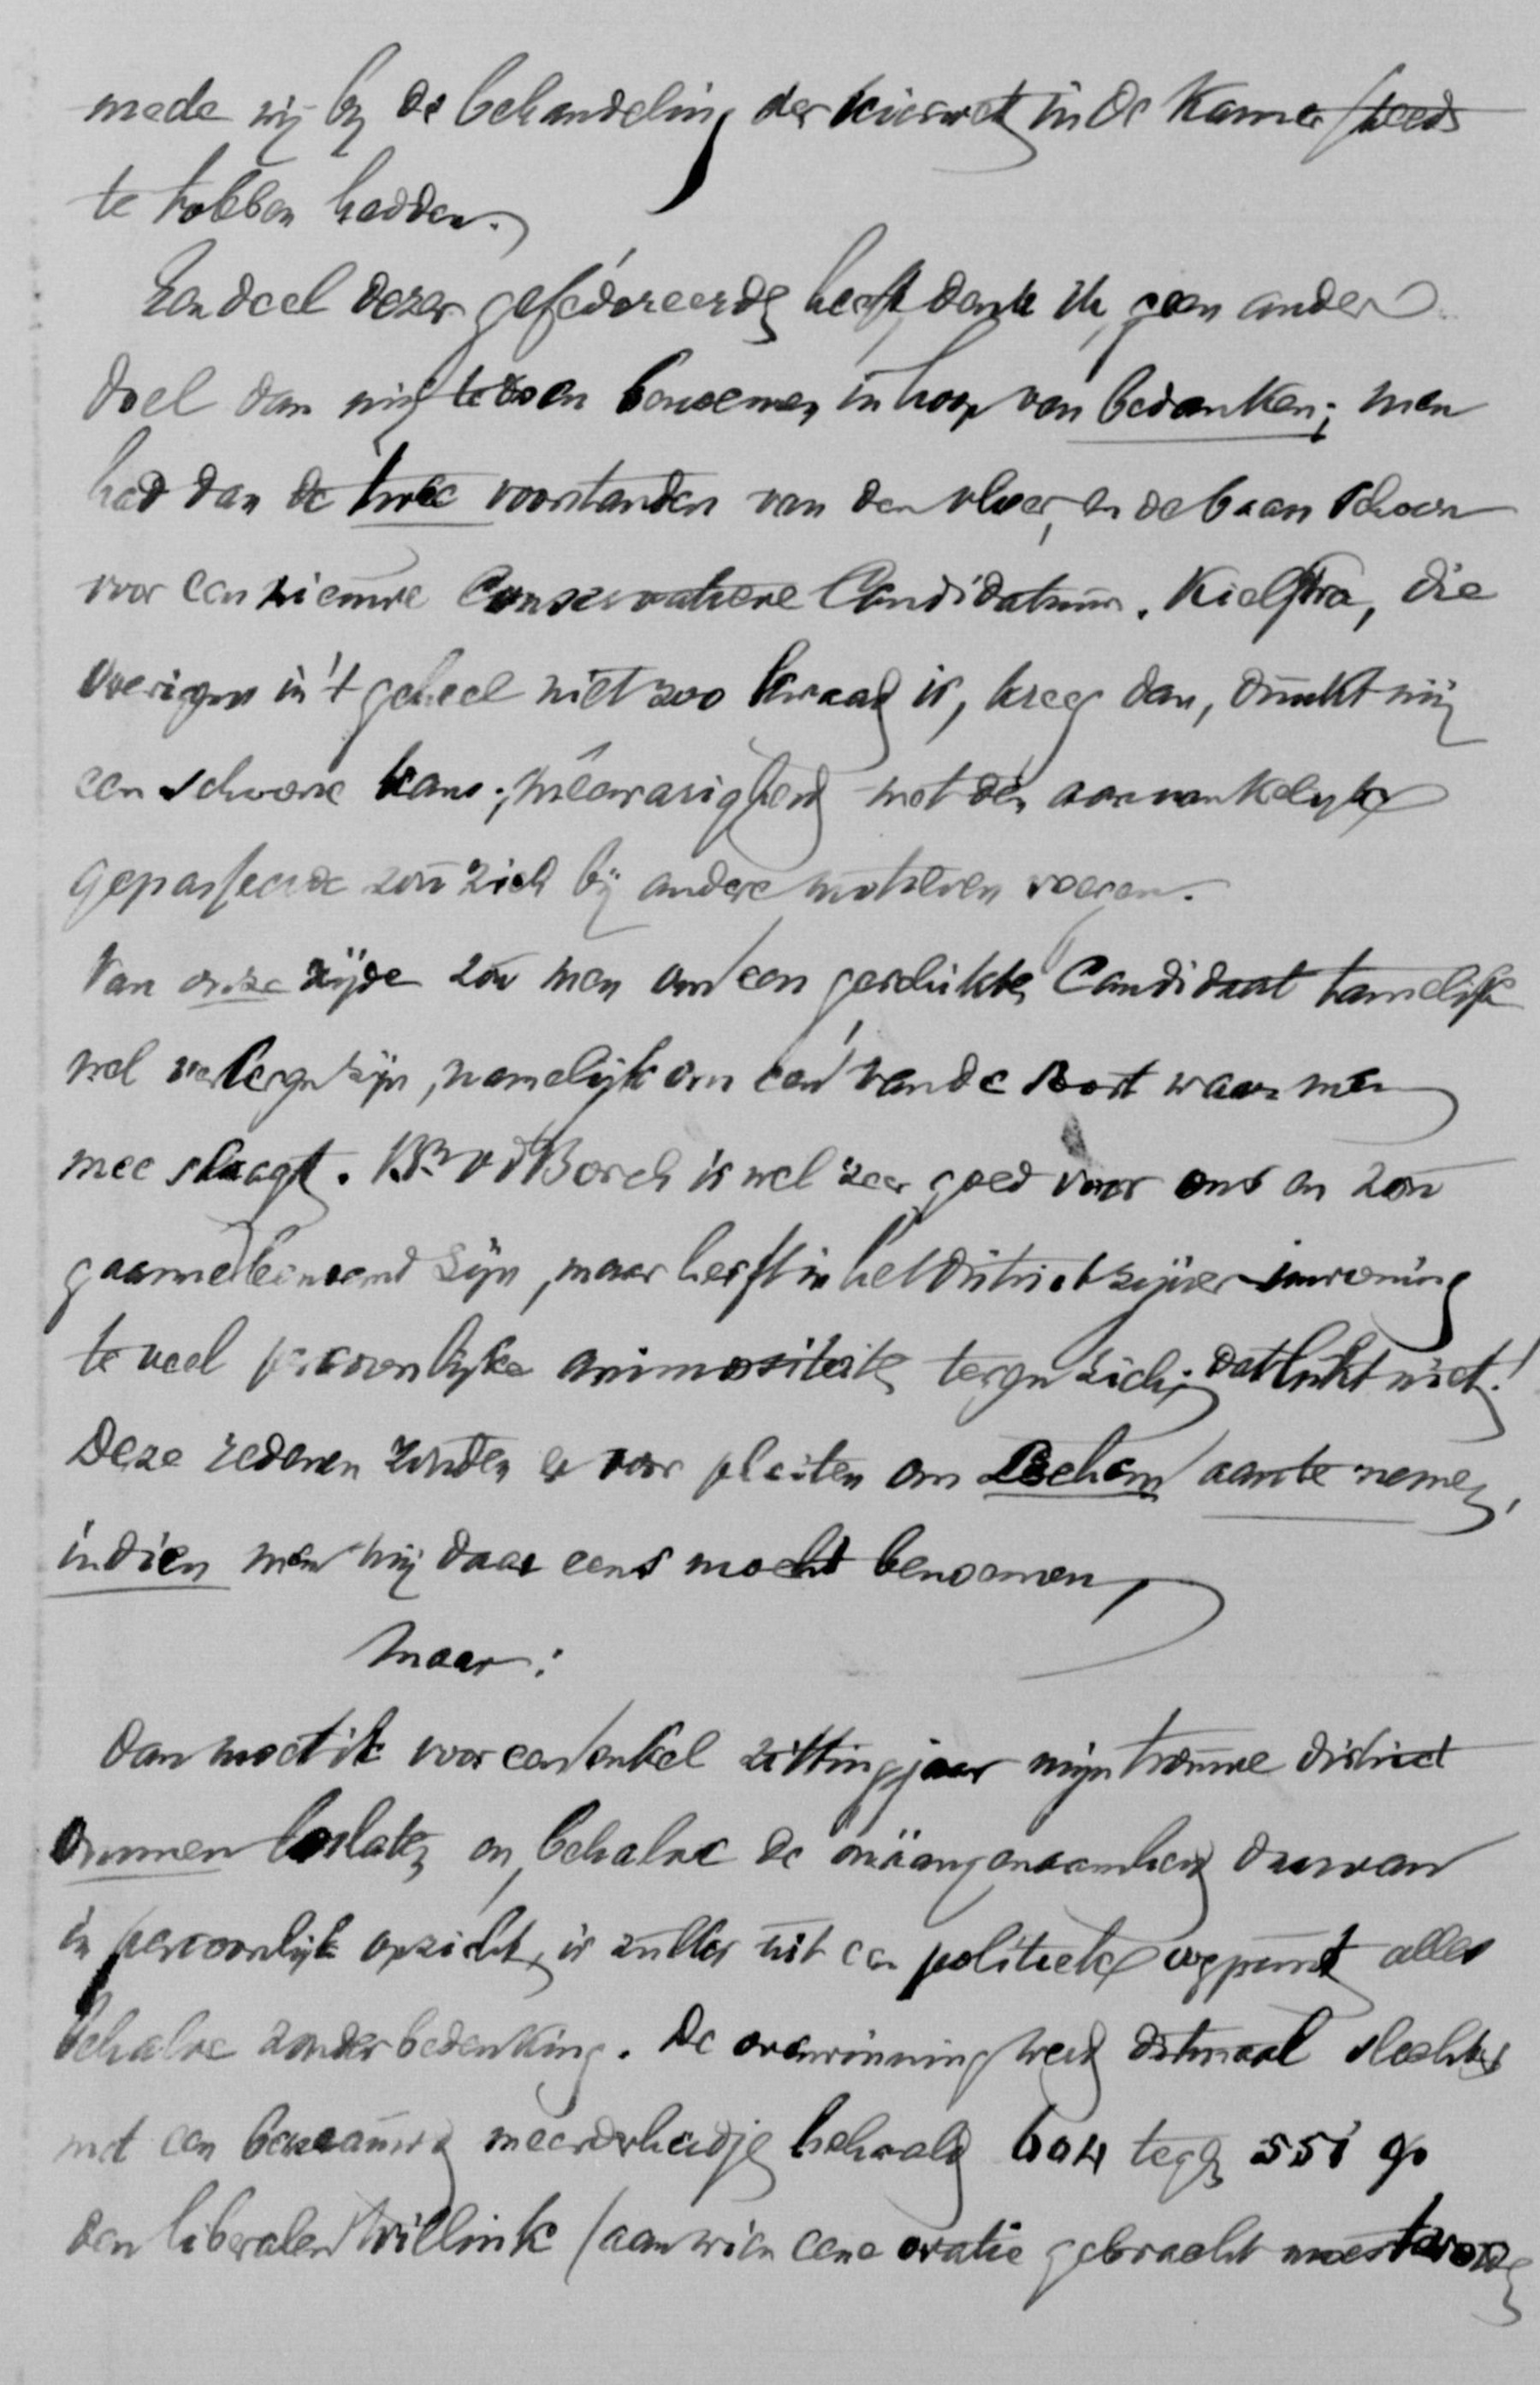 mede wij bij de behandeling der kieswet in de Kamer steeds
te tobben hadden.
Een deel dezer gefedereerden heeft, denk ik, geen ander
doel dan mij te doen benoemen in hoop van bedanken; men
had dan de twee voorstanden van den vloer, en de baan schoon
voor een nieuwe Conservatieve Candidatuur. Kielstra, die
overigens in 't geheel niet zoo kwaad is, kreeg dan, dunkt mij
een schoone kans; meewarigheid met den aanvankelijk
gepasseerde zou zich bij andere motieven voegen.
Van onze zijde zou men om een geschikten Candidaat tamelijk
wel verlegen zijn, namelijk om een van de soort waar men
mee slaagt. Bn v d Borch is wel zeer goed voor ons en zou
gaarne benoemd zijn, maar heeft in het district zijner inwoning
te veel persoonlijke animositeiten tegen zich; dat lukt niet!
Deze redenen zouden er voor pleiten om Lochem aan te nemen,
indien men mij daar eens mocht benoemen,
Maar:
Dan moet ik voor een enkel zittingjaar mijn trouwe district
Ommen loslaten en, behalve de onäangenaamheid daarvan
in persoonlijk opzicht, is zulks uit een politiek oogpunt alles
behalve zonder bedenking. De overwinning werd ditmaal slechts
met een benaauwd meerderheidje behaald 604 tegen 551 op
den liberalen Willink (aan wien eene ovatie gebracht moest worden